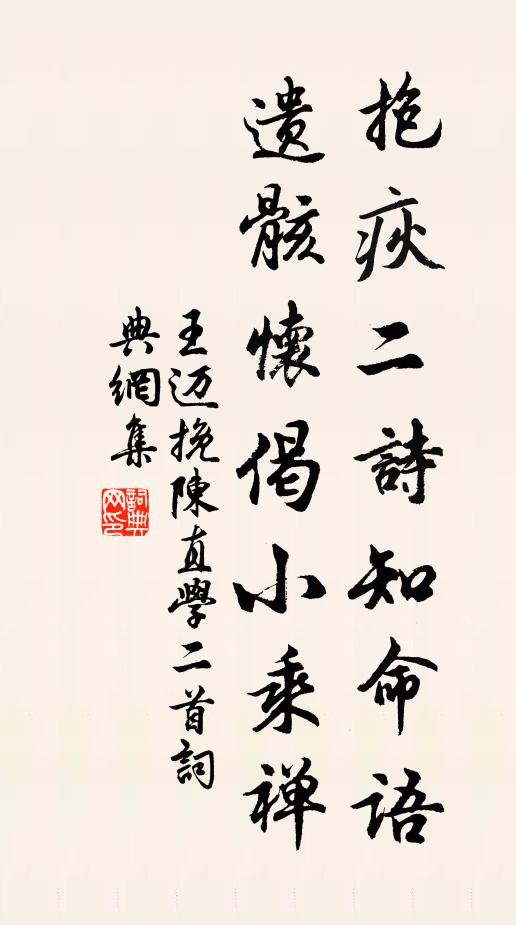 抱疢二詩知命語
遺骸懷偈小乘禅
王迈挽陳直學二首詞
典網集
詞典網印